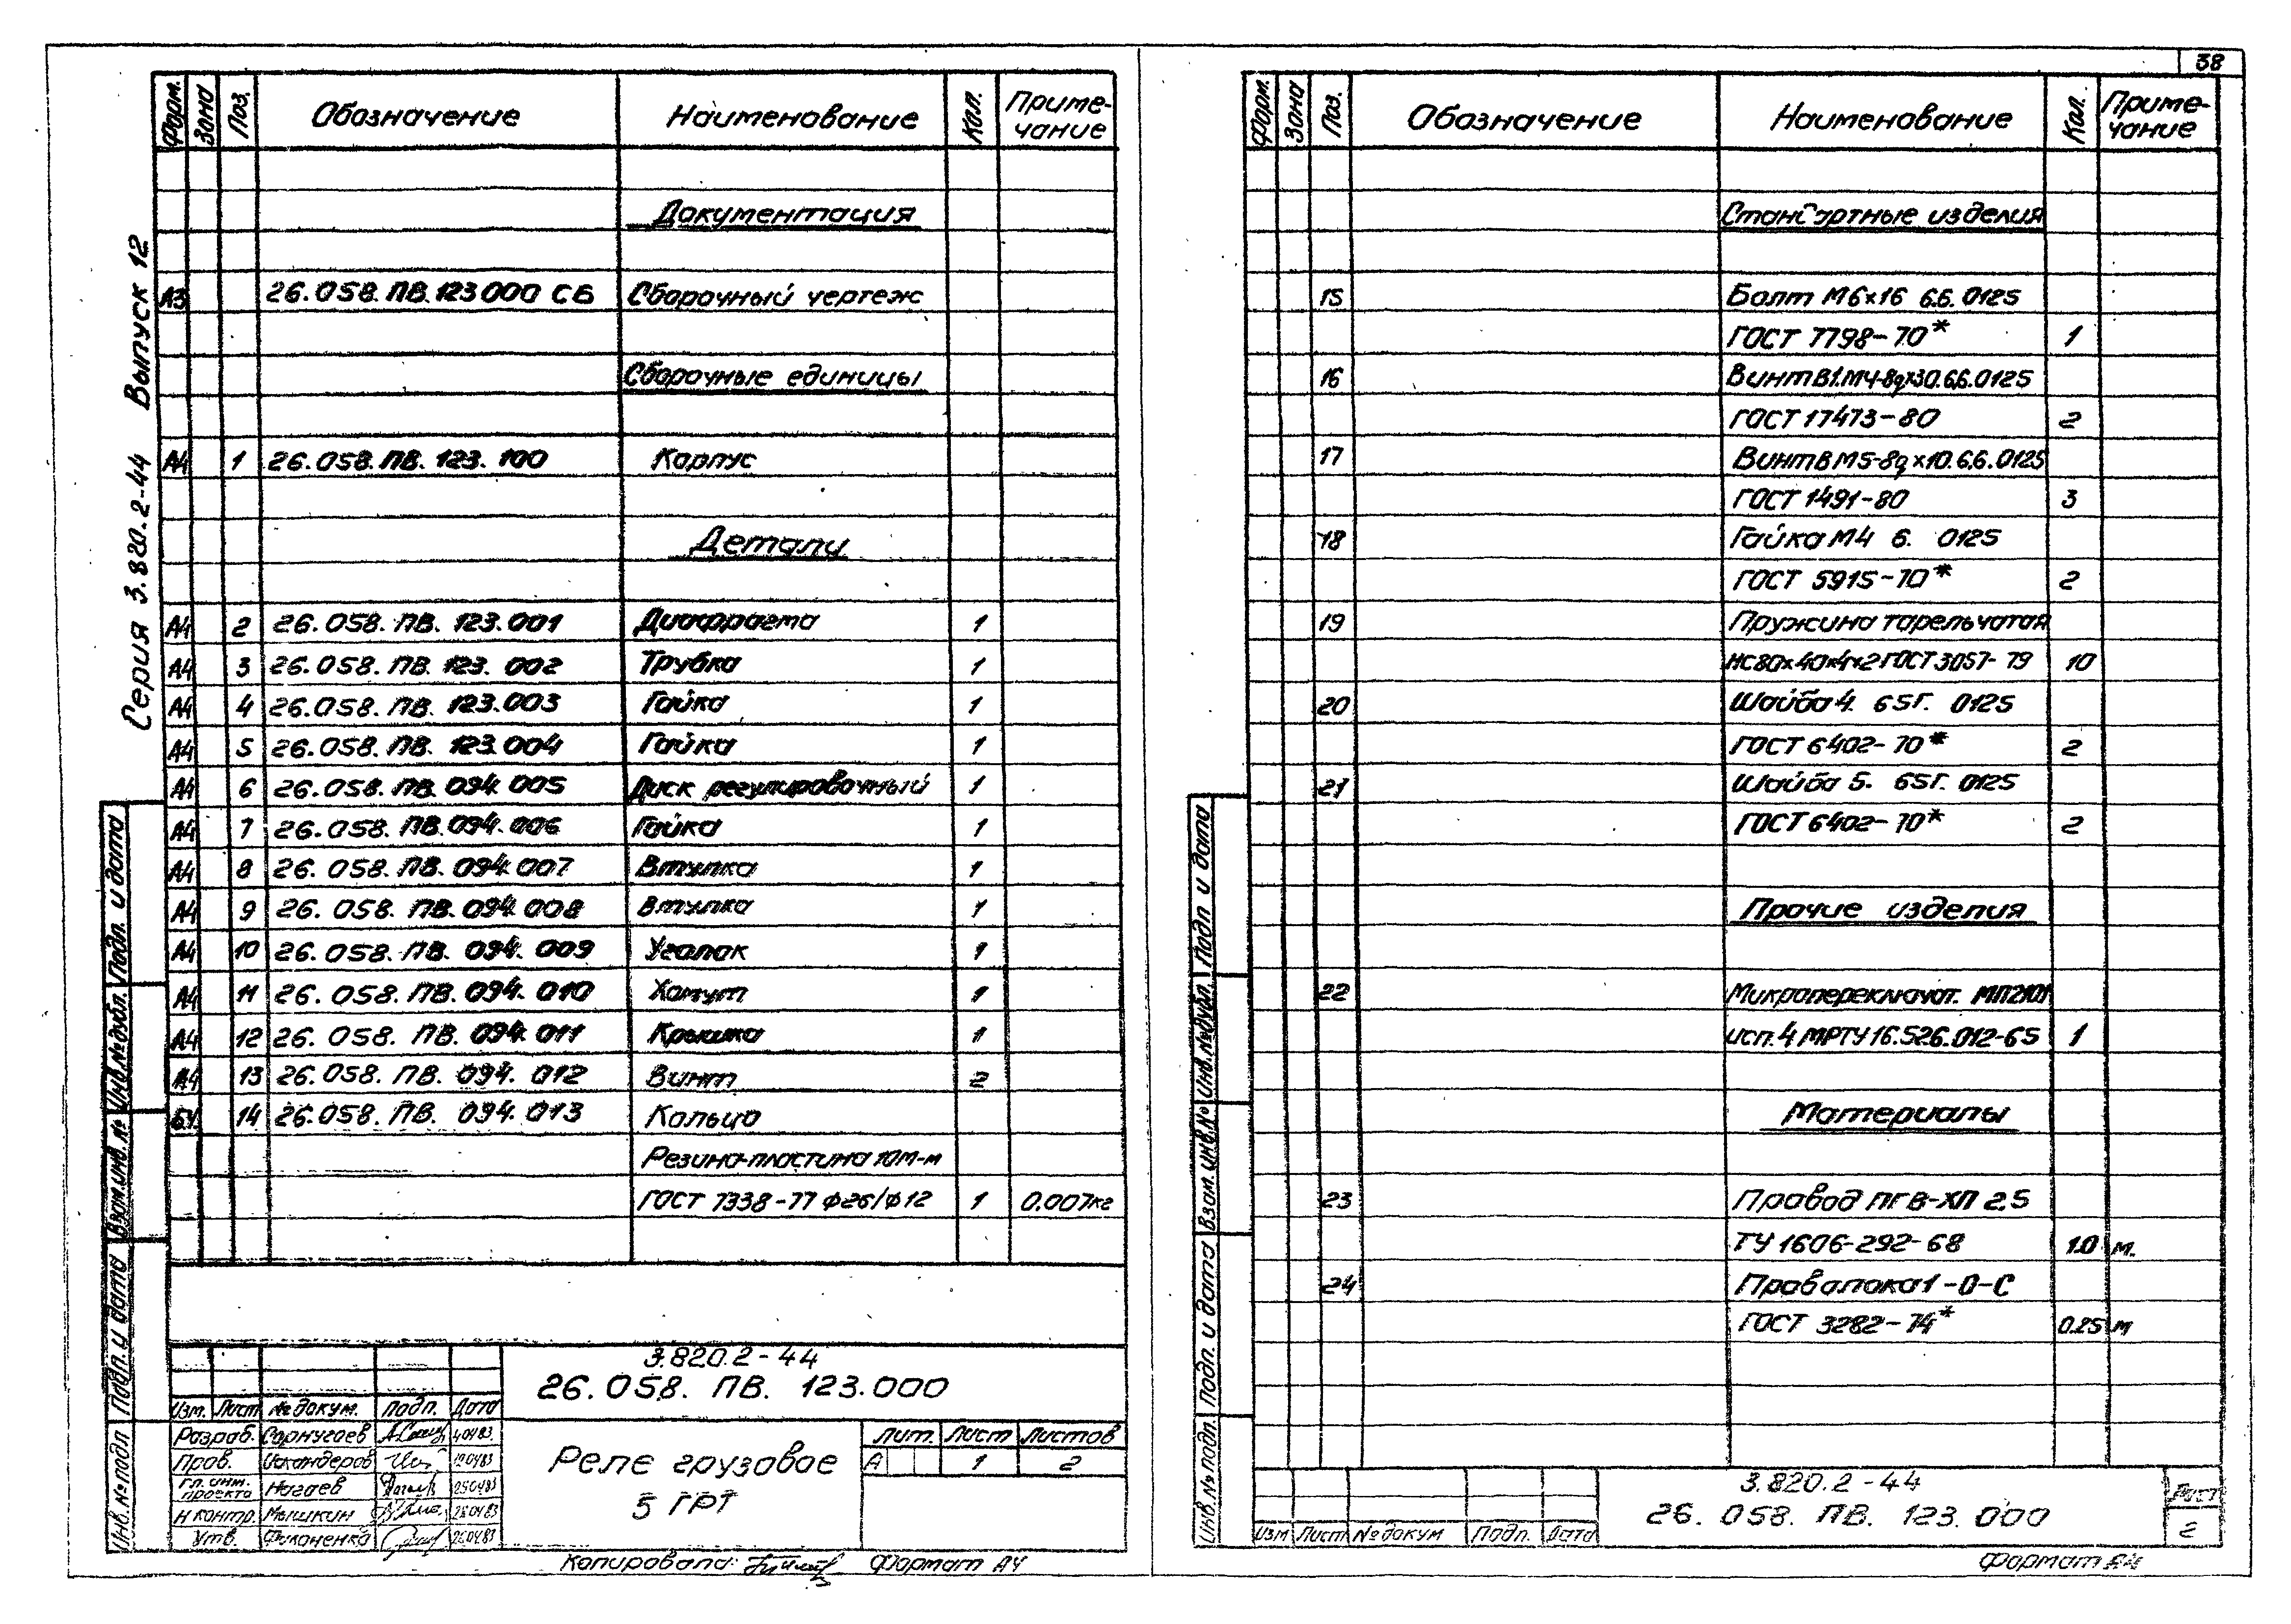 38
Серия 3.820.2-44 Выпуск 12
Форм. Зона Поз. Обозначение Наименование Кол. Приме-
чание
Документация
А3 26.058.ПВ.123000 СБ Сборочный чертеж
Сборочные единицы
А4 1 26.058.ПВ.123.100 Корпус
Детали
А4 2 26.058.ПВ.123.001 Диафрагма 1
А4 3 26.058.ПВ.123.002 Трубка 1
А4 4 26.058.ПВ.123.003 Гайка 1
А4 5 26.058.ПВ.123.004 Гайка 1
А4 6 26.058.ПВ.094.005 Диск регулировочный 1
А4 7 26.058.ПВ.094.006 Гайка 1
А4 8 26.058.ПВ.094.007 Втулка 1
А4 9 26.058.ПВ.094.008 Втулка 1
А4 10 26.058.ПВ.094.009 Уголок 1
А4 11 26.058.ПВ.094.010 Хомут 1
А4 12 26.058.ПВ.094.011 Крышка 1
А4 13 26.058.ПВ.094.012 Винт 2
БЧ. 14 26.058.ПВ.094.013 Кольцо
Резина-пластина 10М-м
ГОСТ 7338-77 ф26/ф12 1 0.007кг
Подп. и дата
Инв.№дубл.
Взам.инв.№
Подп. и дата
Инв.№подл
3.820.2-44
26.058. ПВ. 123.000
Изм. Лист № докум. Подп. Дата
Разраб. Сарнугаев
Пров. Искандеров 190483
Гл. инж.
проекта Нагаев 250483
Н контр. Мышкин 260483
Утв. Филоненко 260483
Реле грузовое
5 ГРТ
Лит. Лист Листов
А 1 2
Копировала: Формат А4
Форм. Зона Поз. Обозначение Наименование Кол. Приме-
чание
Стандартные изделия
15 Болт М6х16 6.6.0125
ГОСТ 7798-70* 1
16 Винт В1.М4-8gх30.6.6.0125
ГОСТ 17473-80 2
17 Винт В М5-8gх10.6.6.0125
ГОСТ 1491-80 3
18 Гайка М4 6. 0125
ГОСТ 5915-70* 2
19 Пружина тарельчатая
НС80х40х4х2 ГОСТ 3057-79 10
20 Шайба 4. 65Г. 0125
ГОСТ 6402-70* 2
21 Шайба 5. 65Г. 0125
ГОСТ 6402-70* 2
Прочие изделия
22 Микропереключат. МП2101
исп.4 МРТУ16.526.012-65 1
Материалы
23 Провод ПГВ-ХЛ 2.5
ТУ 1606-292-68 1.0 м.
24 Проволока 1-О-С
ГОСТ 3282-74* 0.25 м
Подп. и дата
Инв.№дубл.
Взам.инв.№
Подп. и дата
Инв.№подл.
3.820.2-44
26. 058. ПВ. 123.000
Изм Лист № докум Подп. Дата
Лист
2
Формат А4